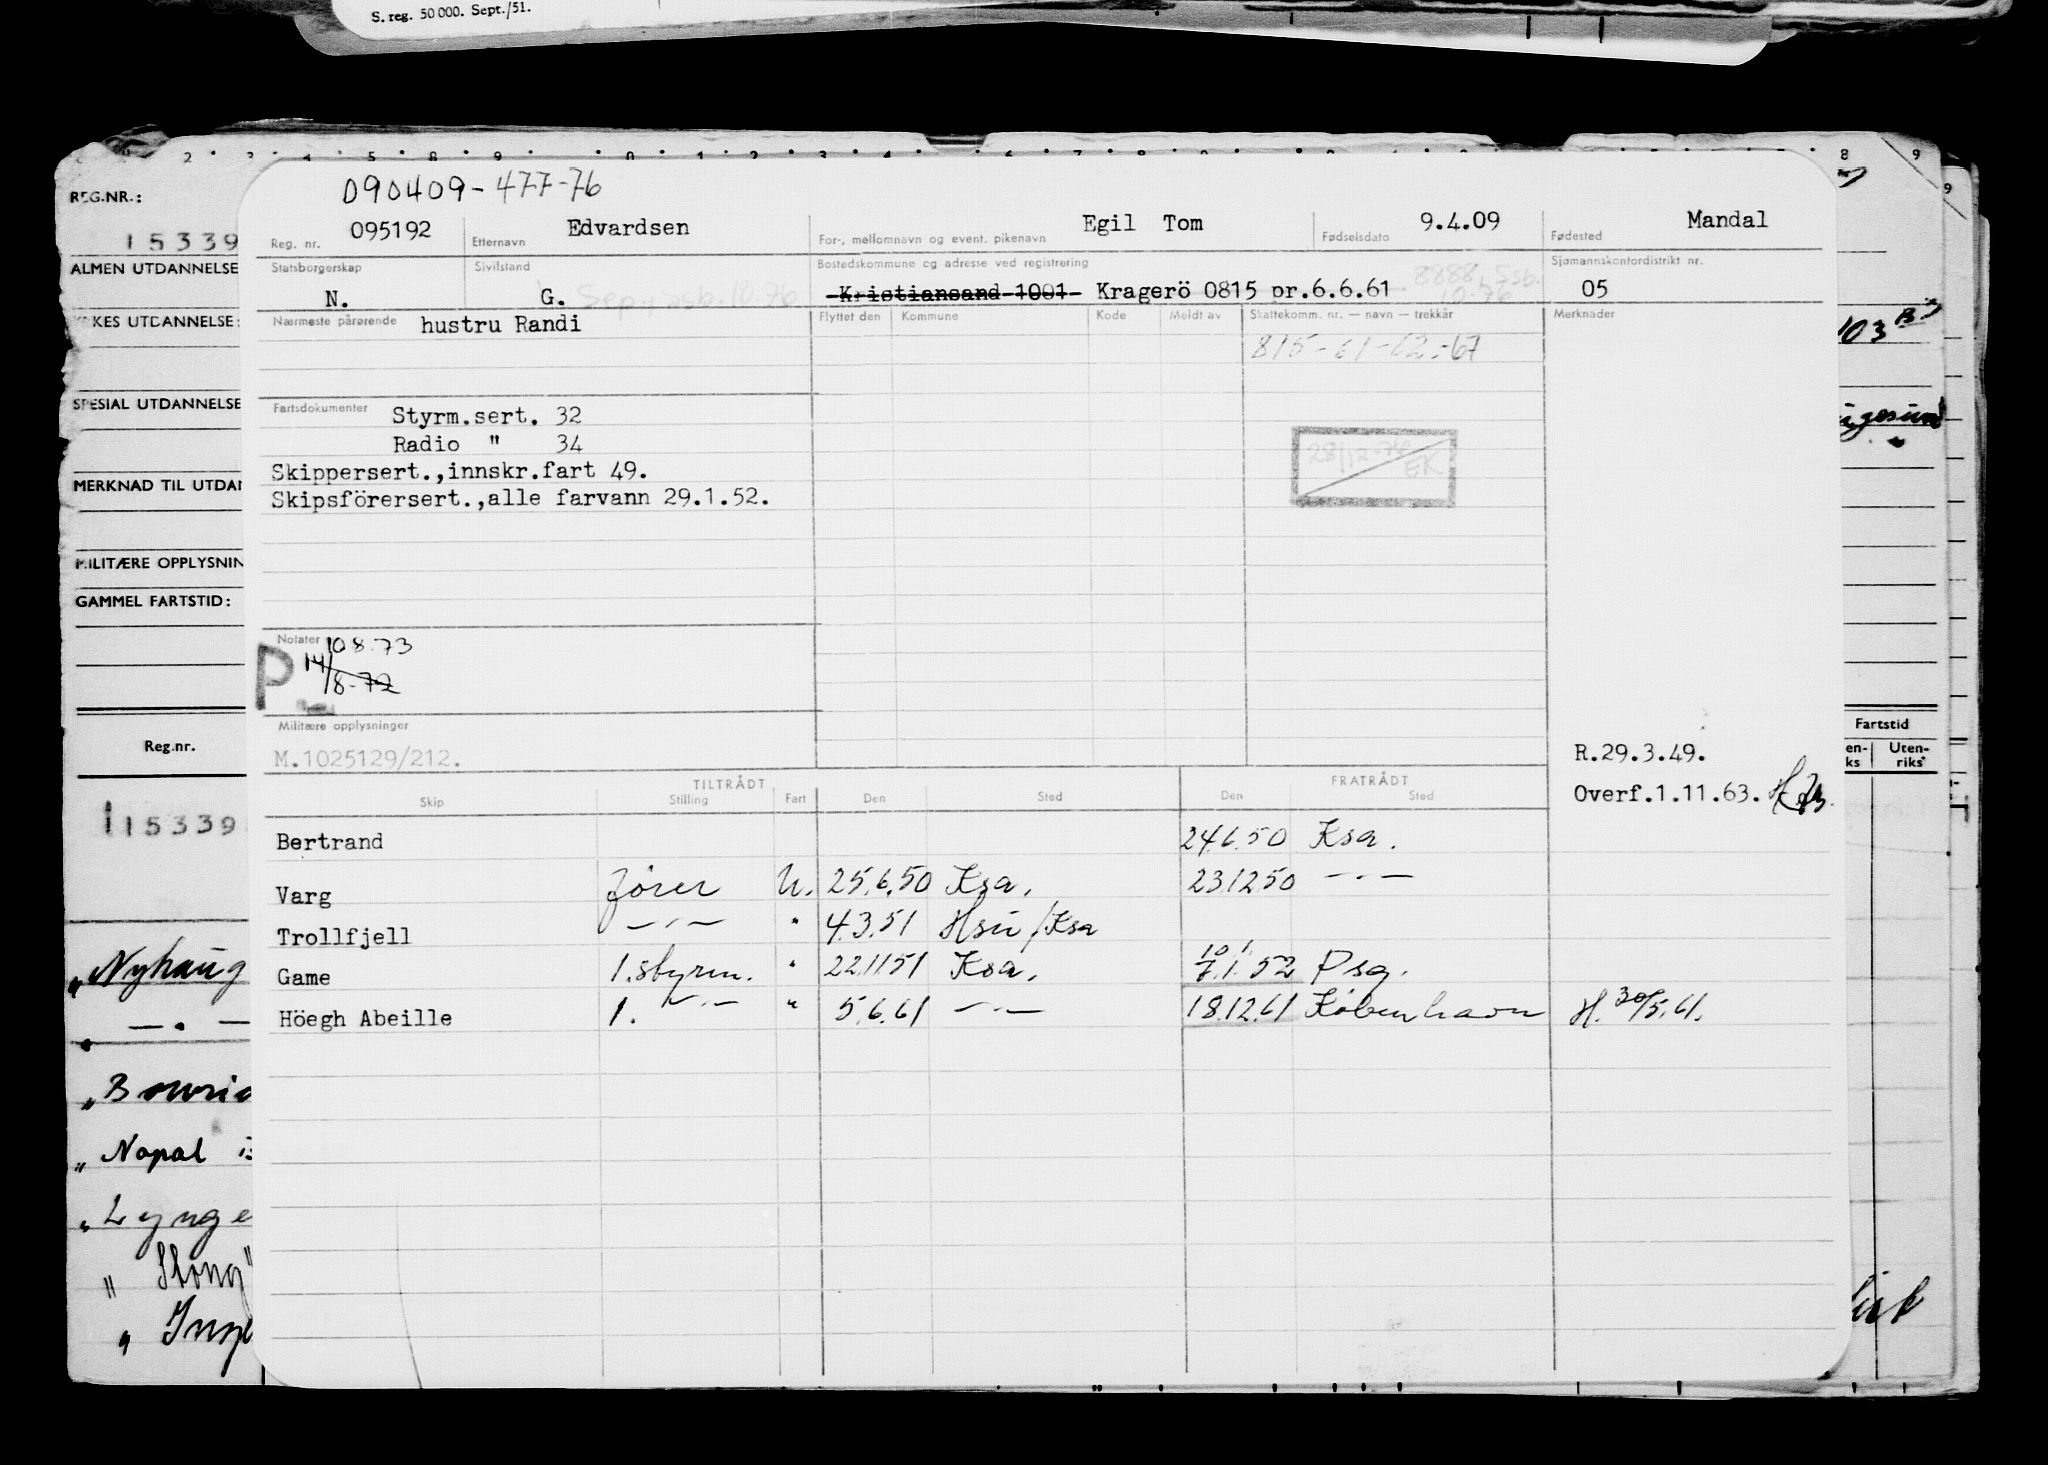 S. reg. 50 000. Sept./51.
REG.NR.:
15339
ALMEN UTDANNELSE
UTDANNELSE:
SPESIAL UTDANNELSE
MERKNAD TIL
MILITÆRE
GAMMEL FARTSTID:
Reg.nr.
115339
„Nyhaug
„
„ Nopal
103
Fartstid
Uten-
riks
090409-477-76
Reg. nr. 095192 Etternavn Edvardsen For-, mellomnavn og event. pikenavn Egil Tom Fødselsdato 9.4.09 Fødested Mandal
Statsborgerskap Sivilstand Bostedskommune og adresse ved registrering Sjømannskontordistrikt nr.
N. G. Kristiansand 1001 Kragerö 0815 pr.6.6.61 05
Nærmeste pårørende hustru Randi Flyttet den Kommune Kode Meldt av Skattekomm. nr. — navn — trekkår Merknader
815-61-62-67
Fartsdokumenter Styrm.sert. 32
Radio " 34
Skippersert.,innskr.fart 49.
Skipsförersert.,alle farvann 29.1.52.
28/12-76
EK
Notater 108.73
P 14/8-72
Militære opplysninger
M.1025129/212.
R.29.3.49.
Overf.1.11.63.
TILTRÅDT FRATRÅDT
Skip Stilling Fart Den Sted Den Sted
Bertrand 24.6.50 Ksa.
Varg fører U. 25.6.50 Ksa. 23.12.50 —·—
Trollfjell —·— " 4.3.51 Hsu/Ksa
Game 1.styrm. " 22.11.51 Ksa. 10.1. 7.1.52 Psg.
Höegh Abeille 1. —·— " 5.6.61 —·— 18.12.61 København H.30/5.61.